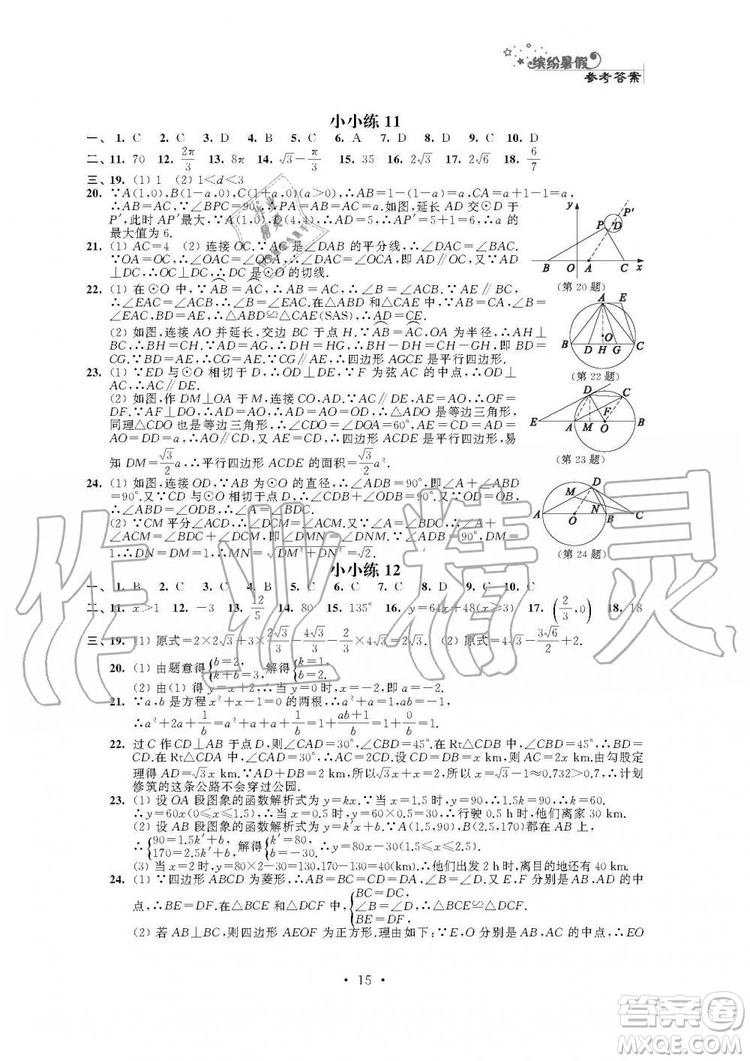 缤纷暑假
参考答案
小小练 11
一、1. C 2. A 3. D 4. B 5. C 6. A 7. D 8. C 9. C 10. D
二、11. 70 12. 2π/3 13. 8π 14. √3−π/3 15. 35 16. 2√3 17. √2 18. 6/7
三、19. (1) 1 (2) 1<d<3
20. ∵A(1,0),B(1−a,0),C(1+a,0)(a>0),∴AB=1−(1−a)=a,CA=a+1−1=a,
∴AB=AC.∵∠BPC=90°,∴PA=AB=AC=a.如图,延长 AD 交⊙D 于
P′,此时 AP′最大,∵A(1,0),D(4,4),∴AD=5,∴AP′=5+1=6,∴a 的
最大值为 6.
21. (1) AC=4 (2) 连接 OC.∵AC 是∠DAB 的平分线,∴∠DAC=∠BAC.
∵OA=OC,∴∠OAC=∠OCA,∴∠DAC=∠OCA,∴OC∥AD,即
∵AD⊥CD,∴OC⊥CD,∴CD 是⊙O 的切线.
22. (1) 在⊙O 中,∵AB=AC,∴AB=AC,∴∠B=∠ACB.∵AE∥BC,
∴∠EAC=∠ACB,∴∠B=∠EAC.在△ABD 和△CAE 中,AB=CA,
∠B=∠EAC,BD=AE,∴△ABD≌△CAE(SAS),∴AD=CE.
(2) 如图,连接 AO 并延长,交边 BC 于点 H.∵AB=AC,OA 为半径,∴AH⊥
BC,∴BH=CH.∵AD=AG,∴DH=HG,∴BH−DH=CH−GH,即 BD=
CG.∵BD=AE,∴CG=AE.∵CG∥AE,∴四边形 AGCE 是平行四边形.
23. (1) ∵ED 与⊙O 相切于 D,∴OD⊥DE.∵F 为弦 AC 的中点,∴OD⊥
AC,∴AC∥DE.
(2) 如图,作 DM⊥OA 于 M,连接 CO,AD.∵AC∥DE,AE=AO,∴OF=
DF.∵AF⊥DO,∴AD=AO,∴AD=AO=OD,∴△ADO 是等边三角形,
同理△CDO 也是等边三角形,∴∠CDO=∠DOA=60°,∴AE=CD=
AD=AO=DO=a,∴AO∥CD,∴四边形 ACDE 是平行四边形,易
知 DM=√3/2 a,∴平行四边形 ACDE 的面积=√3/2 a².
24. (1) 如图,连接 OD,∵AB 为⊙O 的直径,∴∠ADB=90°,即∠A+∠ABD
=90°.又∵CD 与⊙O 相切于点 D,∴∠CDB+∠ODB=90°.
(2) ∵CM 平分∠ACD,∴∠DCM=∠ACM.又∵∠A=∠BDC,∴∠A+
∠ACM=∠BDC+∠DCM,即∠DMN=∠DNM.∵∠ADB=90°,DM=
DN=1,∴MN=√(DM²+DN²)=√2.
(第 20 题)
(第 22 题)
(第 23 题)
(第 24 题)
小小练 12
一、1. B 2. D 3. C 4. B 5. C 6. C 7. C 8. D 9. D 10. C
二、11. x>1 12. −3 13. 12/5 14. 80 15. 135° 16. y=64x+48(x≥0) 17. (2/3,0) 18. 18
三、19. (1) 原式=2×2√3+3×2√3/3−4√3/3−2/3×4√3=2√3. (2) 原式=√3−3√6/2+2.
20. (1) 由题意得{b=2, k+b=3, 解得{k=1, b=2.
(2) 由(1)得 y=x+2.∵a>0,−2<0,∴x 的取值范围是 x>−2.
21. ∵a,b 是方程 x²+x−1=0 的两根,∴a²+a=1,ab=−1,
∴a²+2a+1/b=a²+a+a+1/b=1+(ab+1)/b=1+0=1.
22. 过 C 作 CD⊥AB 于点 D,则∠CAD=30°,∠CBD=45°.在 Rt△CDB 中,∠CBD=45°,∴∠BCD=45°,∴CD
=BD.在 Rt△ACD 中,∠CAD=30°,∴AC=2CD.设 CD=DB=x km,则 AC=2x km.由勾股定理
得 AD=√3x km.所以√3x+x=2.解得 x=√3−1,所以 CD=√3−1≈0.732>0.7,∴计划
修筑的这条公路不会穿过公园.
23. (1) 设 OA 段图象的函数解析式为 y=kx.∵当 x=1.5 时,y=90,∴1.5k=90,∴k=60.
∴y=60x(0≤x≤1.5).∵当 x=0.5 时,y=60×0.5=30,∴行驶 0.5 h 时,他们离家 30 km.
(2) 设 AB 段图象的函数解析式为 y=k′x+b.∵A(1.5,90),B(2.5,170)在 AB 上,
∴{90=1.5k′+b, 170=2.5k′+b, 解得{k′=80, b=−30. ∴y=80x−30(1.5≤x≤2.5).
(3) ∵当 x=2 时,y=80×2−30=130,170−130=40,∴他们出发 2 h 时,离目的地还有 40 km.
24. (1) ∵四边形 ABCD 为菱形,∴AB=BC=CD=DA,∠B=∠D.又∵E,F 分别是 AB,AD 的中
点,∴BE=DF.在△BCE 和△DCF 中,{BC=DC, ∠B=∠D, BE=DF, ∴△BCE≌△DCF.
(2) 若 AB⊥BC,则四边形 AEOF 为正方形.理由如下:∵E,O 分别是 AB,AC 的中点,∴EO
• 15 •
作业精灵
答案圈
MXQE.COM